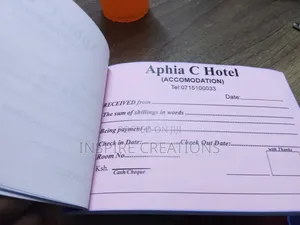 Aphia C Hotel
(ACCOMODATION)
Tel:0715100033
Date:
RECEIVED from
The sum of shillings in words
Being payment of
Check in Date: Check Out Date:
Room No. with Thanks
Ksh.
Cash/Cheque
INSPIRE CREATIONS